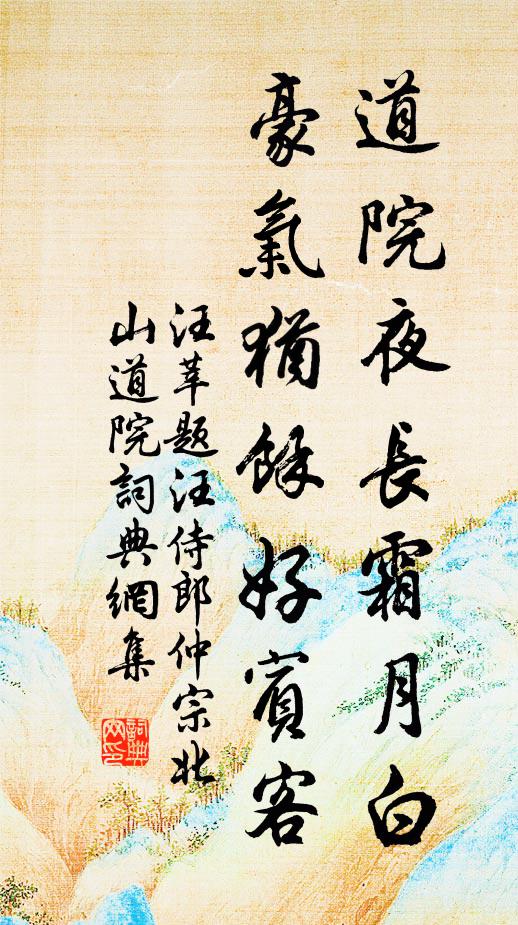 道院夜長霜月白
豪氣猶餘好賓客
汪莘題汪侍郎仲宗北
山道院詞典網集
詞典網印